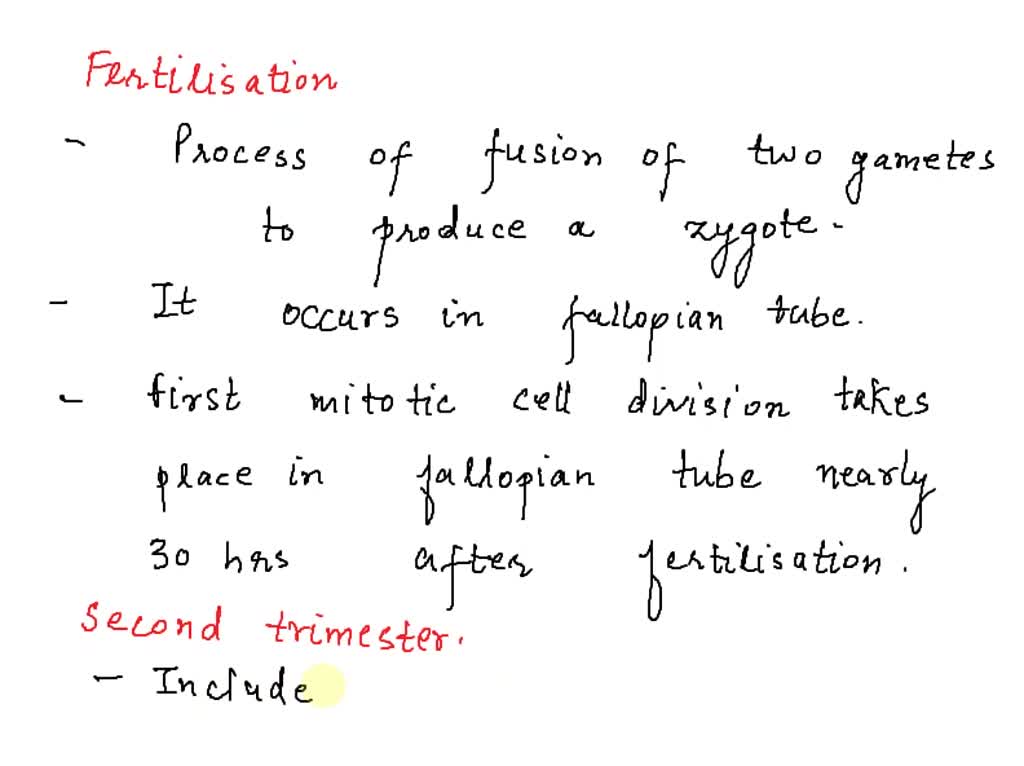 Fertilisation
- Process of fusion of two gametes
to produce a zygote.
- It occurs in fallopian tube.
- first mitotic cell division takes
place in fallopian tube nearly
30 hrs after fertilisation.
Second trimester.
- Include